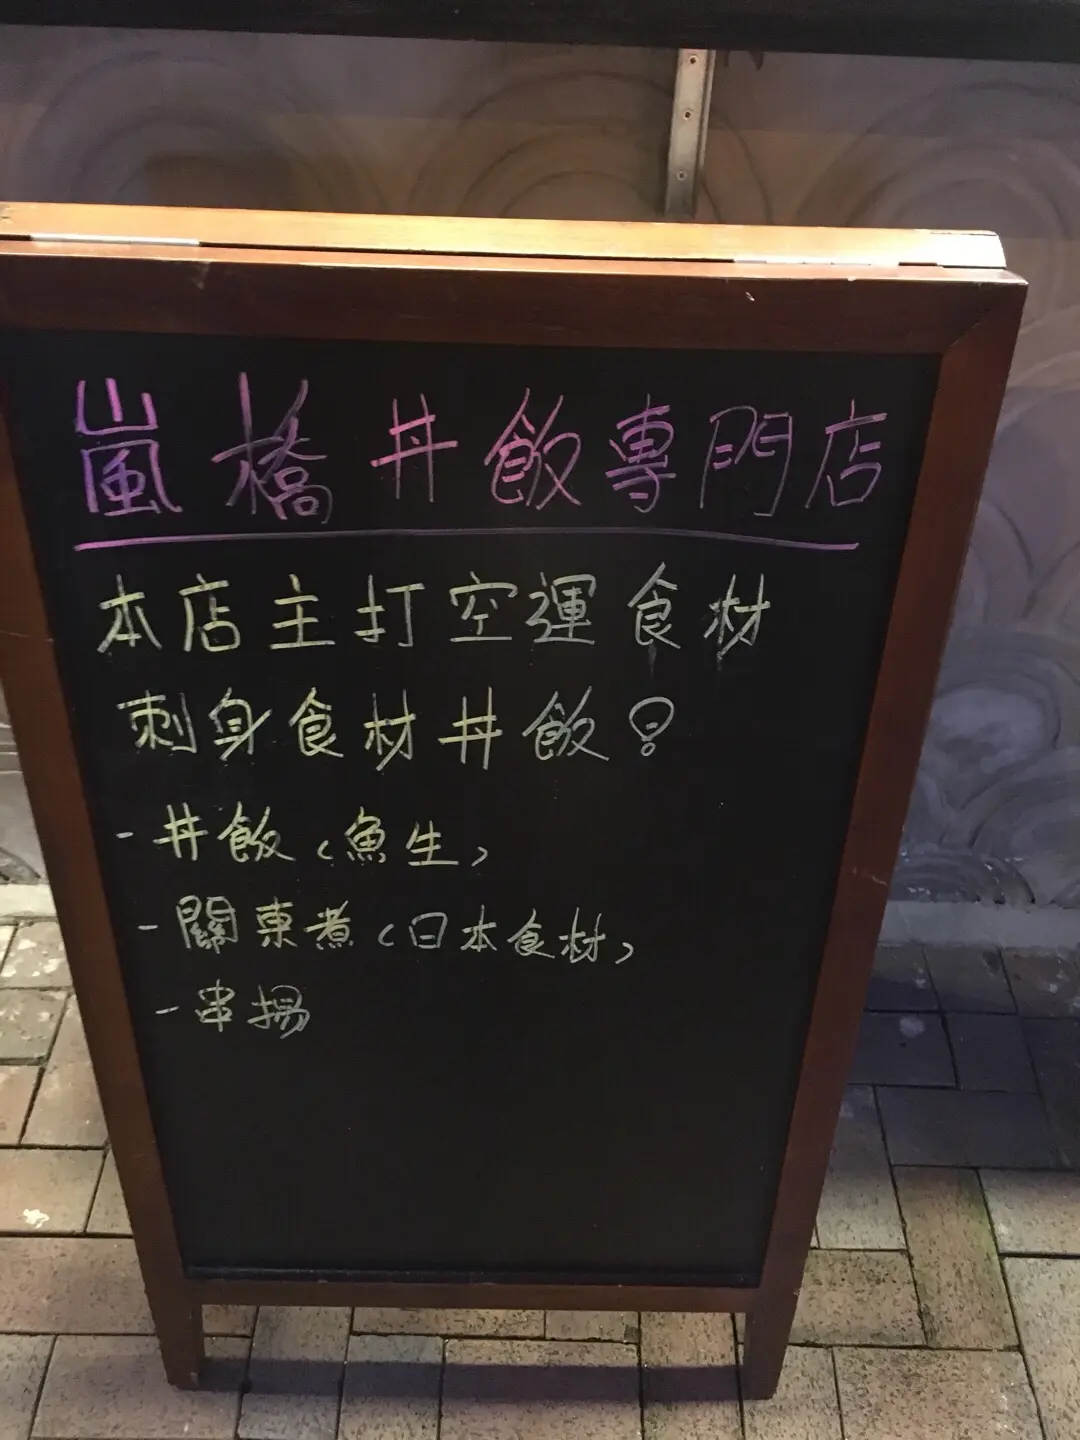 嵐橋丼飯專門店
本店主打空運食材
刺身食材丼飯!
- 丼飯(魚生)
- 關東煮(日本食材)
- 串揚